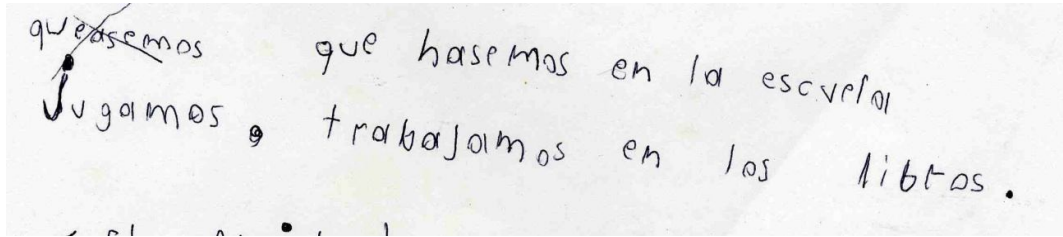 queasemos que hasemos en la escuela
Jugamos, trabajamos en los libros.